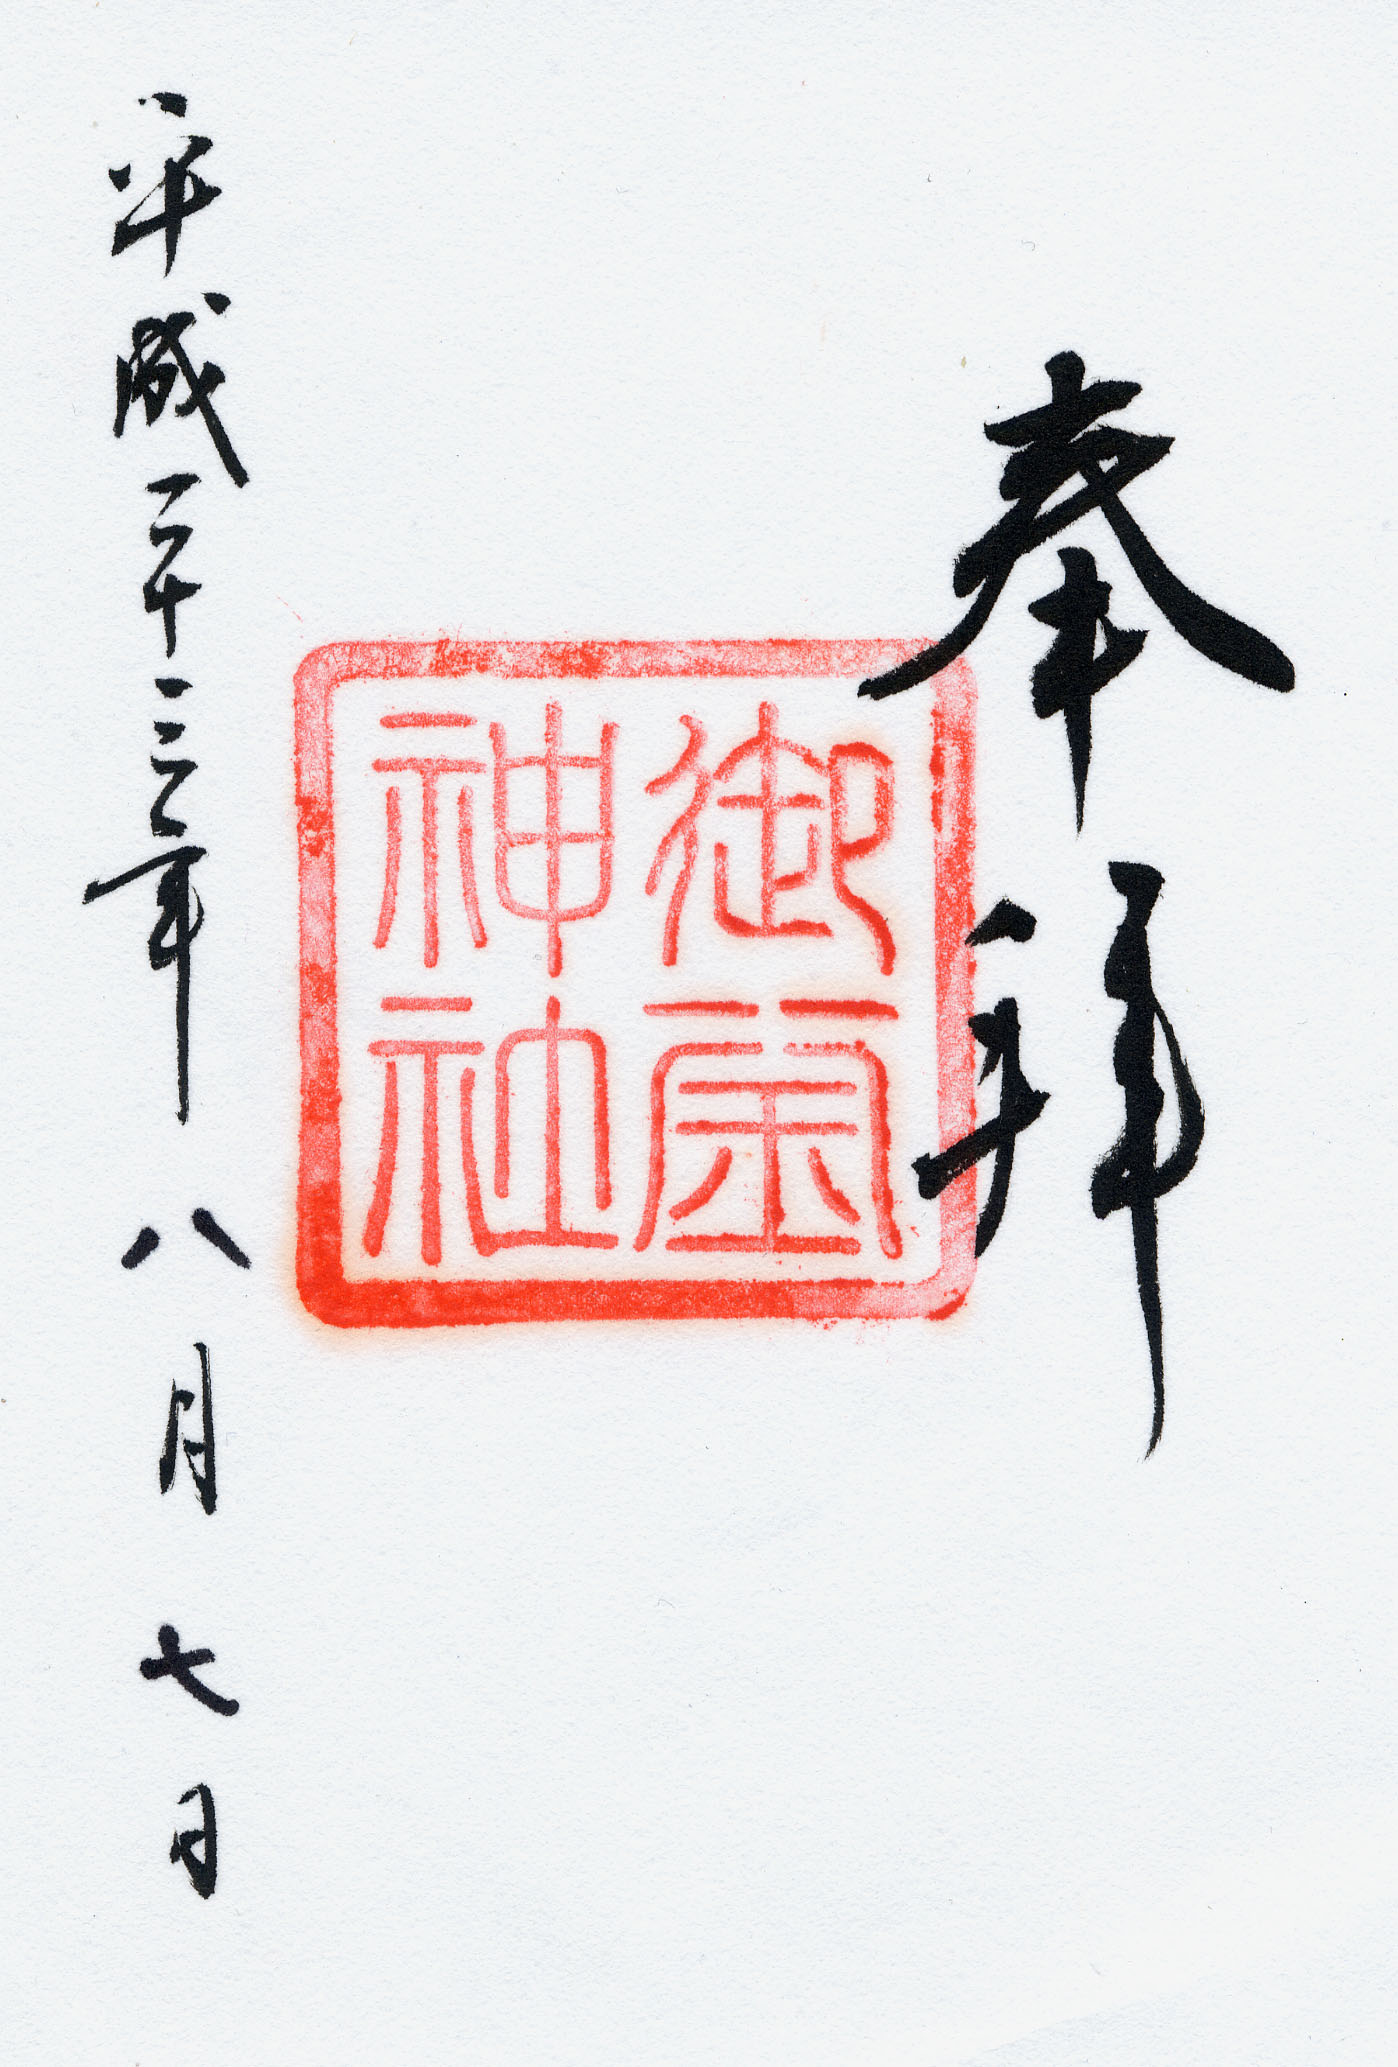 奉拝
御
神社
平成二十三年八月七日